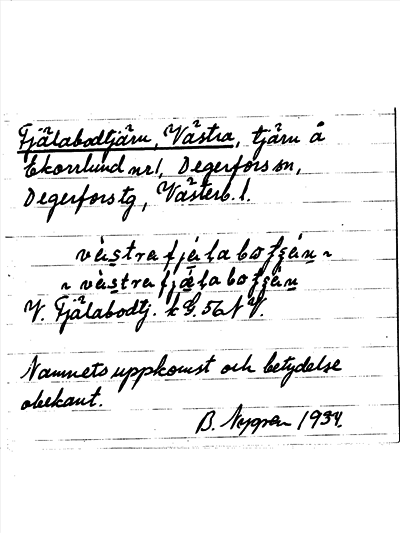 Fjälabodtjärn, Västra, tjärn å
Ekorrlund nr 1, Degerfors sn,
Degerfors tg, Västerb. l.
västra fjälabo
~ västra fjälabo
V. Fjälabodtj. k G. 56 N V.
Namnets uppkomst och betydelse
obekant.
B. Nygren 1934.